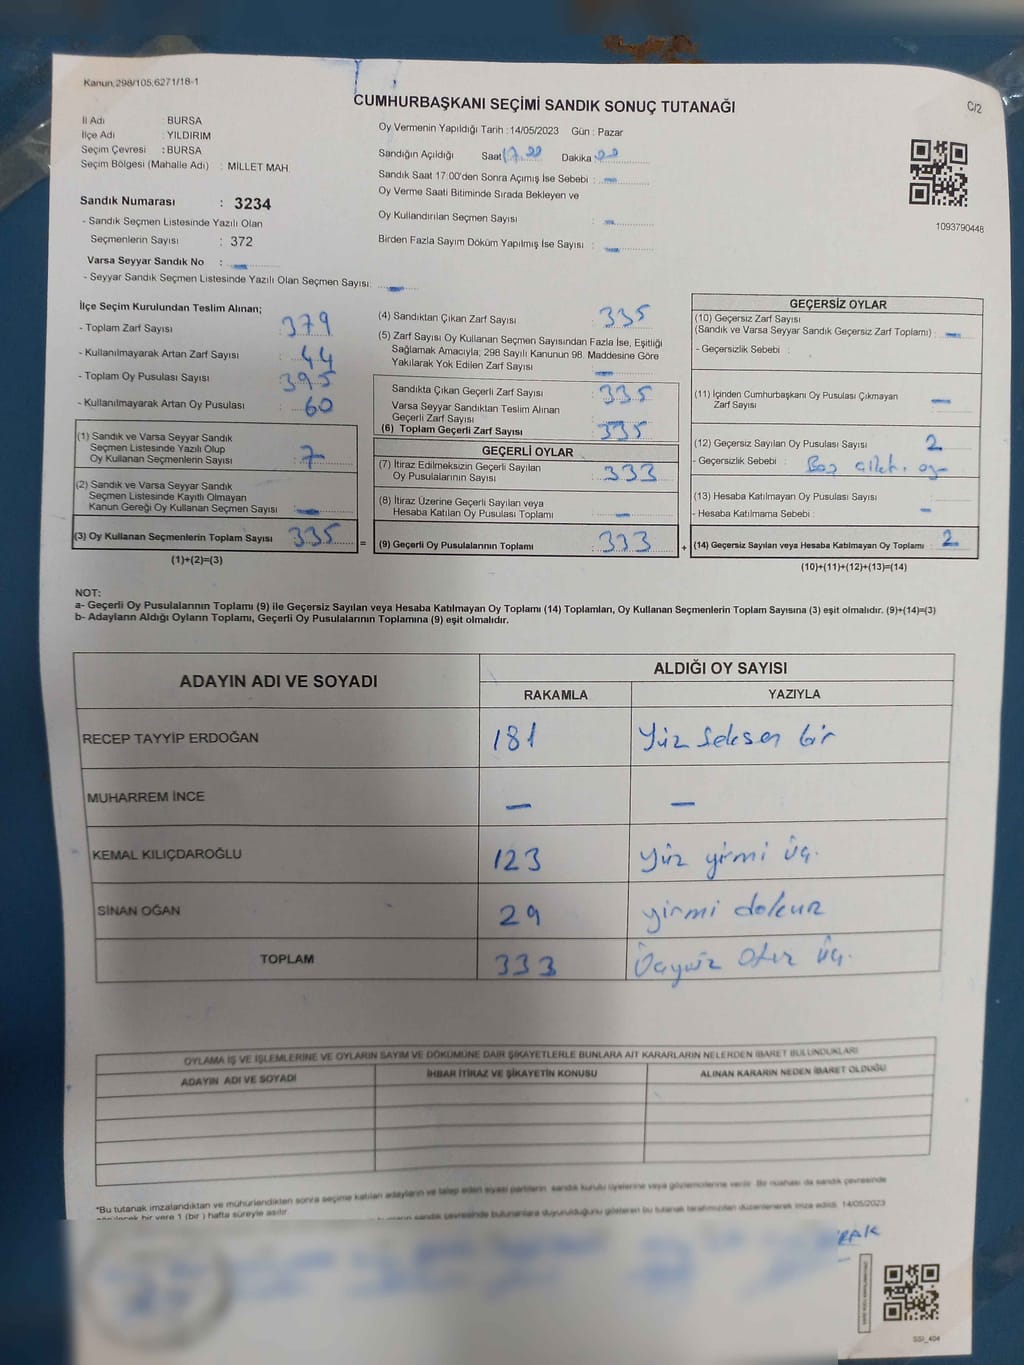 Kanun 298/105,6271/18-1
CUMHURBAŞKANI SEÇİMİ SANDIK SONUÇ TUTANAĞI
C/2
İl Adı : BURSA
İlçe Adı : YILDIRIM
Seçim Çevresi : BURSA
Seçim Bölgesi (Mahalle Adı) : MİLLET MAH.
Sandık Numarası : 3234
- Sandık Seçmen Listesinde Yazılı Olan
Seçmenlerin Sayısı : 372
Varsa Seyyar Sandık No : –
- Seyyar Sandık Seçmen Listesinde Yazılı Olan Seçmen Sayısı: –
Oy Vermenin Yapıldığı Tarih : 14/05/2023 Gün : Pazar
Sandığın Açıldığı Saat 17.00 Dakika 00
Sandık Saat 17:00'den Sonra Açımış İse Sebebi : –
Oy Verme Saati Bitiminde Sırada Bekleyen ve
Oy Kullandırılan Seçmen Sayısı : –
Birden Fazla Sayım Döküm Yapılmış İse Sayısı : –
1093790448
İlçe Seçim Kurulundan Teslim Alınan;
- Toplam Zarf Sayısı : 379
- Kullanılmayarak Artan Zarf Sayısı : 44
- Toplam Oy Pusulası Sayısı : 395
- Kullanılmayarak Artan Oy Pusulası : 60
(1) Sandık ve Varsa Seyyar Sandık
Seçmen Listesinde Yazılı Olup
Oy Kullanan Seçmenlerin Sayısı : 7
(2) Sandık ve Varsa Seyyar Sandık
Seçmen Listesinde Kayıtlı Olmayan
Kanun Gereği Oy Kullanan Seçmen Sayısı : –
(3) Oy Kullanan Seçmenlerin Toplam Sayısı : 335
(1)+(2)=(3)
=
(4) Sandıktan Çıkan Zarf Sayısı : 335
(5) Zarf Sayısı Oy Kullanan Seçmen Sayısından Fazla İse, Eşitliği
Sağlamak Amacıyla; 298 Sayılı Kanunun 98. Maddesine Göre
Yakılarak Yok Edilen Zarf Sayısı : –
Sandıkta Çıkan Geçerli Zarf Sayısı : 335
Varsa Seyyar Sandıktan Teslim Alınan
Geçerli Zarf Sayısı :
(6) Toplam Geçerli Zarf Sayısı : 335
GEÇERLİ OYLAR
(7) İtiraz Edilmeksizin Geçerli Sayılan
Oy Pusulalarının Sayısı : 333
(8) İtiraz Üzerine Geçerli Sayılan veya
Hesaba Katılan Oy Pusulası Toplamı : –
(9) Geçerli Oy Pusulalarının Toplamı : 333
+
GEÇERSİZ OYLAR
(10) Geçersiz Zarf Sayısı
(Sandık ve Varsa Seyyar Sandık Geçersiz Zarf Toplamı) : –
- Geçersizlik Sebebi :
(11) İçinden Cumhurbaşkanı Oy Pusulası Çıkmayan
Zarf Sayısı : –
(12) Geçersiz Sayılan Oy Pusulası Sayısı : 2
- Geçersizlik Sebebi :
(13) Hesaba Katılmayan Oy Pusulası Sayısı :
- Hesaba Katılmama Sebebi : –
(14) Geçersiz Sayılan veya Hesaba Katılmayan Oy Toplamı : 2
(10)+(11)+(12)+(13)=(14)
NOT:
a- Geçerli Oy Pusulalarının Toplamı (9) ile Geçersiz Sayılan veya Hesaba Katılmayan Oy Toplamı (14) Toplamları, Oy Kullanan Seçmenlerin Toplam Sayısına (3) eşit olmalıdır. (9)+(14)=(3)
b- Adayların Aldığı Oyların Toplamı, Geçerli Oy Pusulalarının Toplamına (9) eşit olmalıdır.
ADAYIN ADI VE SOYADI
ALDIĞI OY SAYISI
RAKAMLA YAZIYLA
RECEP TAYYİP ERDOĞAN 181 Yüz seksen bir
MUHARREM İNCE – –
KEMAL KILIÇDAROĞLU 123 Yüz yirmi üç.
SİNAN OĞAN 29 yirmi dokuz
TOPLAM 333 Üçyüz otuz üç.
OYLAMA İŞ VE İŞLEMLERİNE VE OYLARIN SAYIM VE DÖKÜMÜNE DAİR ŞİKAYETLERLE BUNLARA AİT KARARLARIN NELERDEN İBARET BULUNDUKLARI
ADAYIN ADI VE SOYADI İHBAR İTİRAZ VE ŞİKAYETİN KONUSU ALINAN KARARIN NEDEN İBARET OLDUĞU
*Bu tutanak imzalandıktan ve mühürlendikten sonra seçime katılan adayların ve talep eden siyasi partilerin sandık kurulu üyelerine veya gözlemcilerine verilir. Bir nüshası da sandık çevresinde
bir yere 1 (bir) hafta süreyle asılır.
sandık çevresinde bulunanlara duyurulduğunu gösteren bu tutanak tarafımızdan düzenlenerek imza edildi. 14/05/2023
SSİ_404